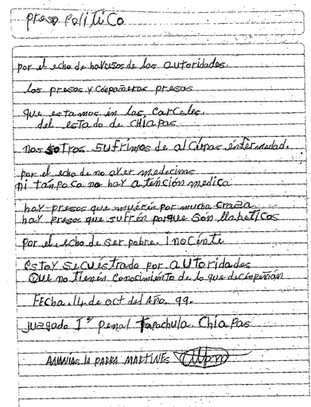 preso político
por el echo de havusos de las autoridades.
los presos y compañeras presas
que estamos in las carceles
del estado de chiapas
nos otras sufrimos de alcupas enfermedad.
por el echo de no aver medecinas
ni tanpoco no hay atención medica
hay presos que mueren por mucha
hay presos que sufren porque son
por el echo de ser pobre inocente
estoy secuestrado por autoridades
que no tienen conosimiento de lo que
Fecha. 14 de oct del año. 99.
juzgado 1º penal Tapachula. Chiapas
PARRA MARTINES